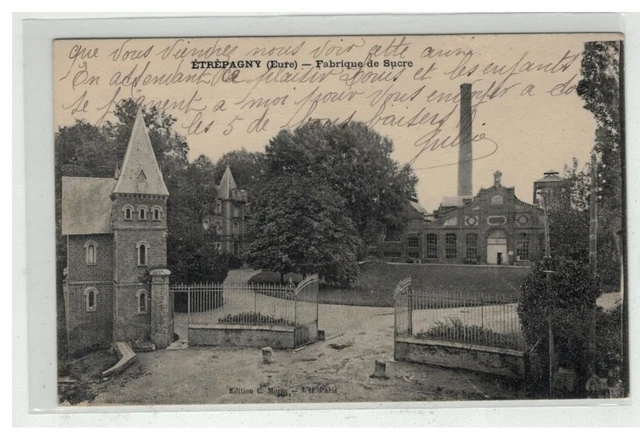 que vous viendrez nous voir cette année
ÉTRÉPAGNY (Eure) — Fabrique de Sucre
En attendant ce plaisir Louis et les enfants
se joignent à moi pour vous envoyer à
les 5 de bons baisers
Edition C.